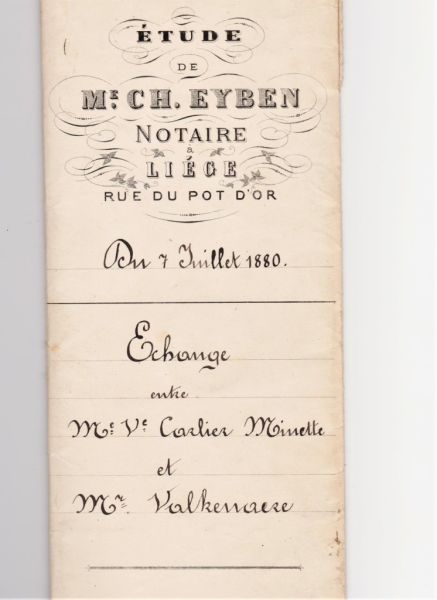 ÉTUDE
DE
Mᴱ. CH. EYBEN
NOTAIRE
à
LIÉGE
RUE DU POT D'OR
Du 7 Juillet 1880.
Echange
entre
Mᵉ. Vᵉ Carlier Minette
et
Mʳ. Valkenaere